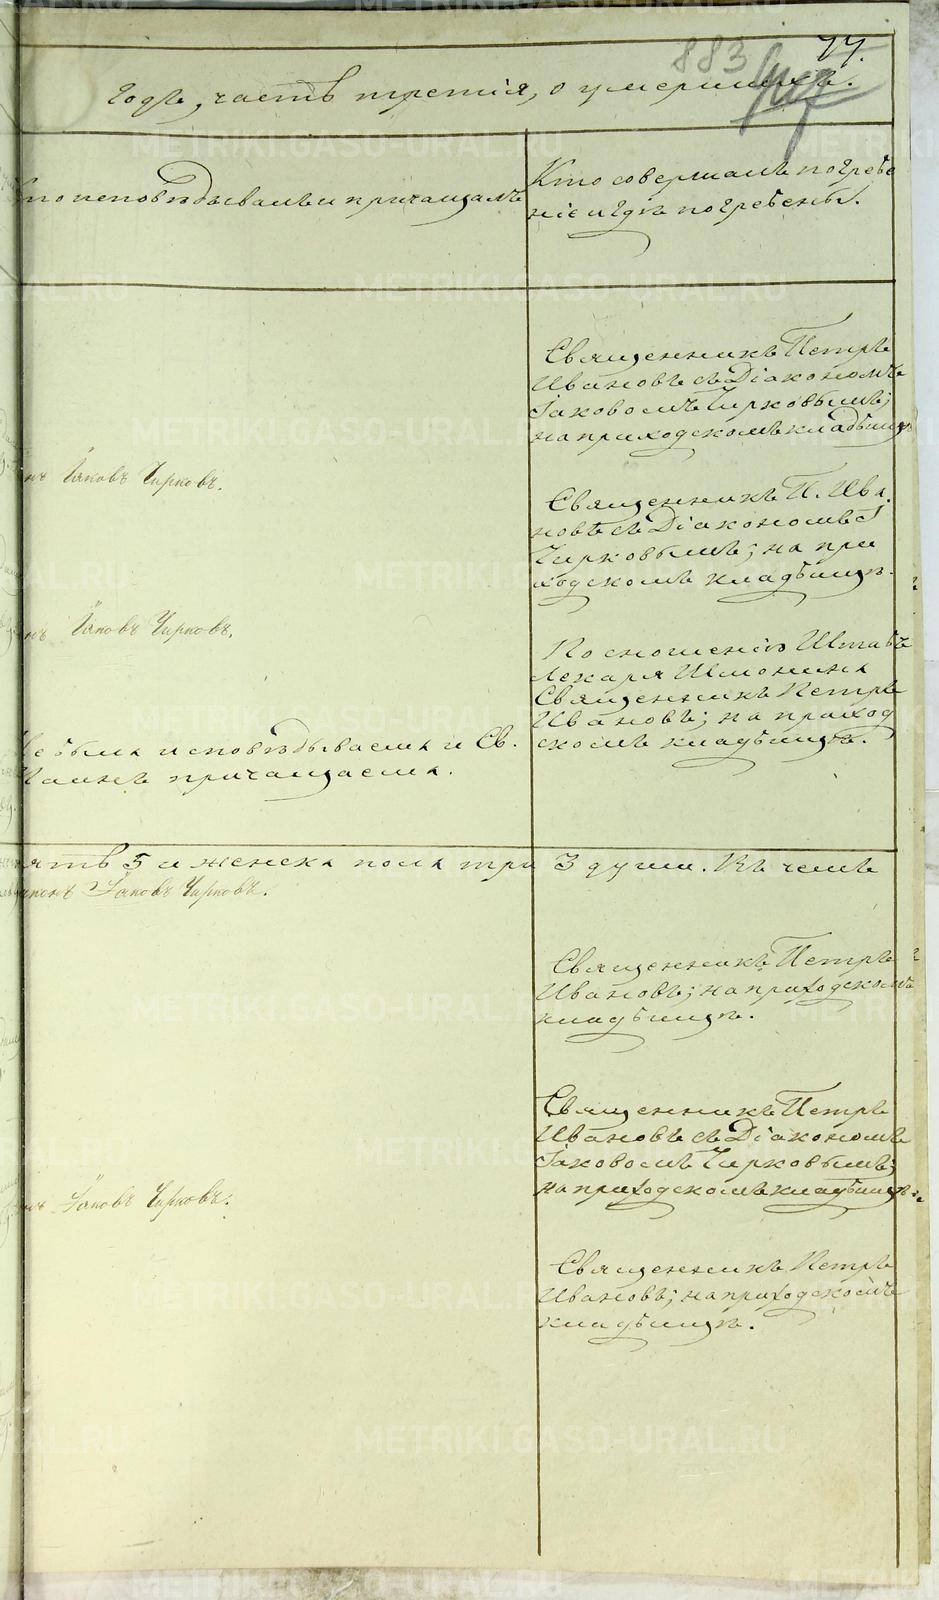 883 77.
годѣ, часть третія, о умершихъ.
Кто исповѣдывалъ и причащалъ
Кто совершалъ погребе
ніе и гдѣ погребены.
Священникъ Петръ
Ивановъ съ Діакономъ
Іаковомъ Чирковымъ;
на приходскомъ кладбищѣ
Іяковъ Чирковъ.
Священникъ П. Ива
новъ съ Діакономъ І
Чирковымъ; на при
ходскомъ кладбищѣ.
Іяковъ Чирковъ.
По сношенію Штабъ
Лекаря Шмонина
Священникъ Петръ
Ивановъ; на приход
скомъ кладбищѣ.
Не была исповѣдываема и Св.
Таинъ причащаема.
5 и женска пола три 3 души. Въ чемъ
Іаковъ Чирковъ.
Священникъ Петръ
Ивановъ; на приходскомъ
кладбищѣ.
Священникъ Петръ
Ивановъ съ Діакономъ
Іаковомъ Чирковымъ;
на приходскомъ кладбищѣ.
Іаковъ Чирковъ.
Священникъ Петръ
Ивановъ; на приходскомъ
кладбищѣ.
METRIKI.GASO-URAL.RU